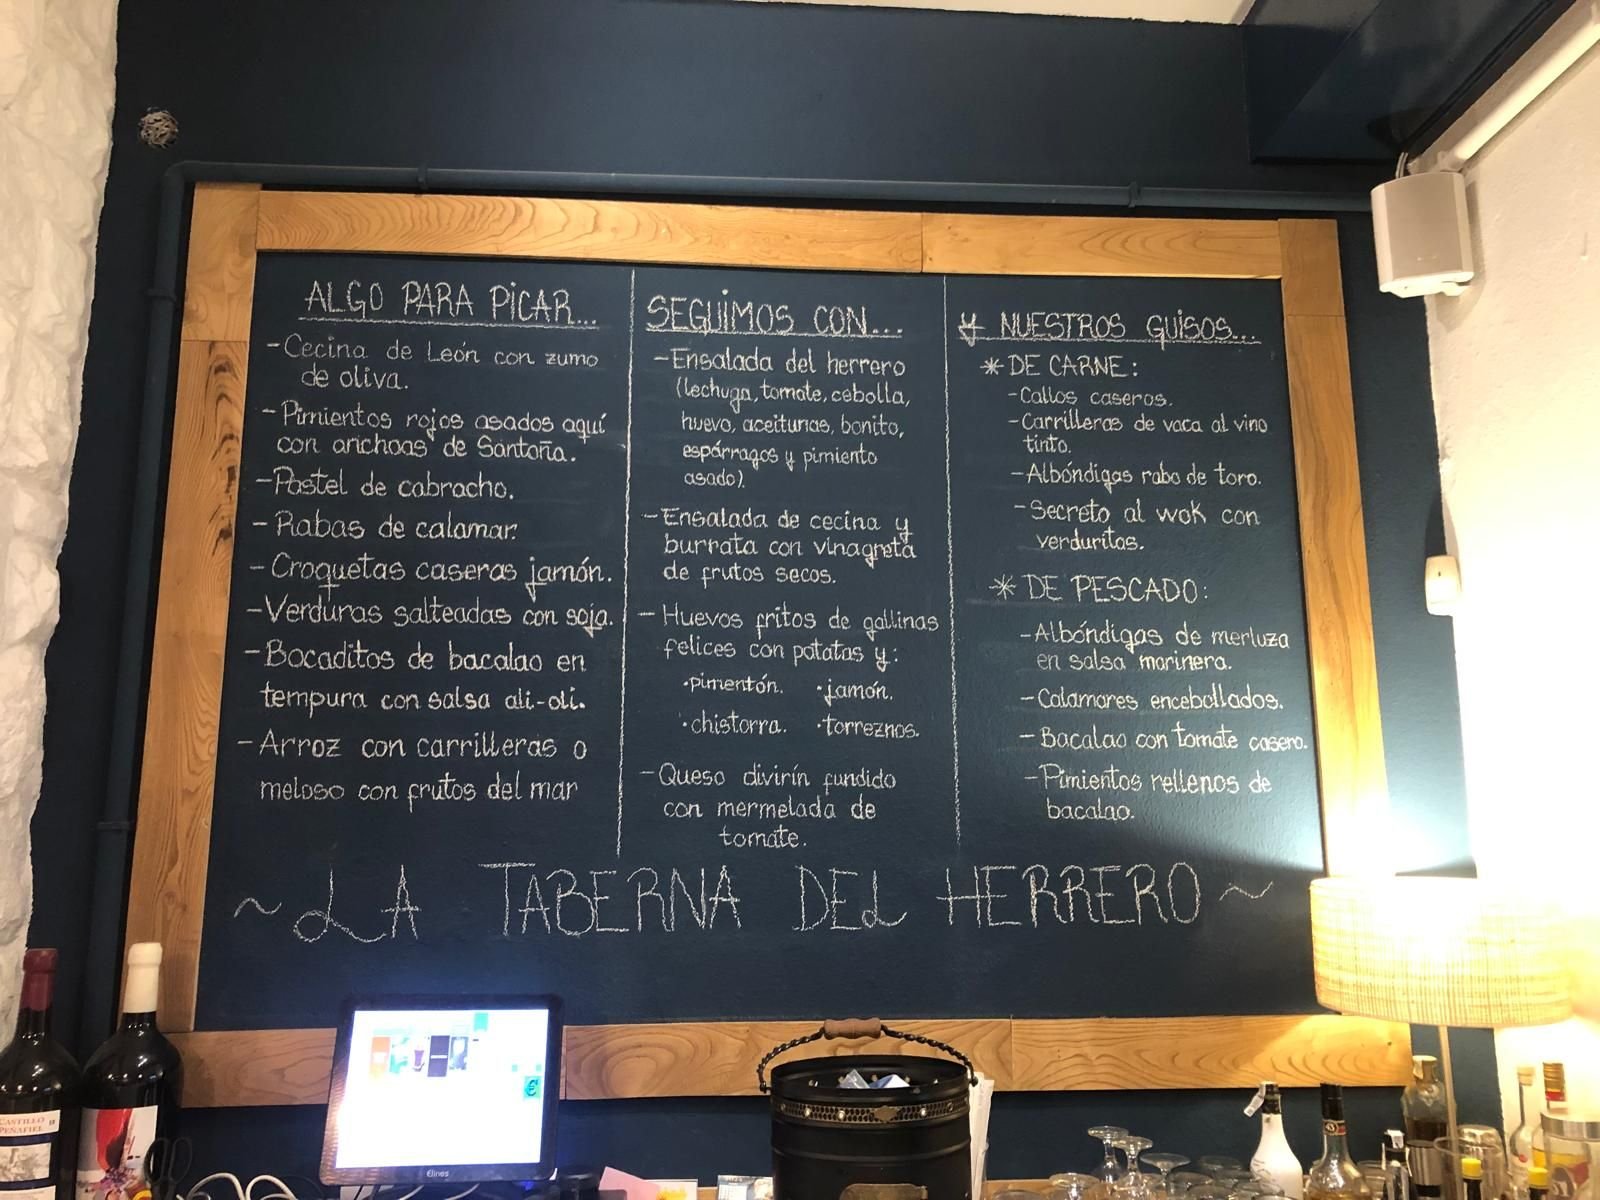 ALGO PARA PICAR...
-Cecina de León con zumo
de oliva.
-Pimientos rojos asados aquí
con anchoas de Santoña.
-Pastel de cabracho.
-Rabas de calamar.
-Croquetas caseras jamón.
-Verduras salteadas con soja.
-Bocaditos de bacalao en
tempura con salsa ali-oli.
-Arroz con carrilleras o
meloso con frutos del mar
SEGUIMOS CON...
-Ensalada del herrero
(lechuga, tomate, cebolla,
huevo, aceitunas, bonito,
espárragos y pimiento
asado).
-Ensalada de cecina y
burrata con vinagreta
de frutos secos.
-Huevos fritos de gallinas
felices con patatas y:
·pimentón. ·jamón.
·chistorra. ·torreznos.
-Queso divirín fundido
con mermelada de
tomate.
Y NUESTROS GUISOS...
* DE CARNE:
-Callos caseros.
-Carrilleras de vaca al vino
tinto.
-Albóndigas rabo de toro.
-Secreto al wok con
verduritas.
* DE PESCADO:
-Albóndigas de merluza
en salsa marinera.
-Calamares encebollados.
-Bacalao con tomate casero.
-Pimientos rellenos de
bacalao.
~ LA TABERNA DEL HERRERO ~
CASTILLO
PEÑAFIEL
Elines